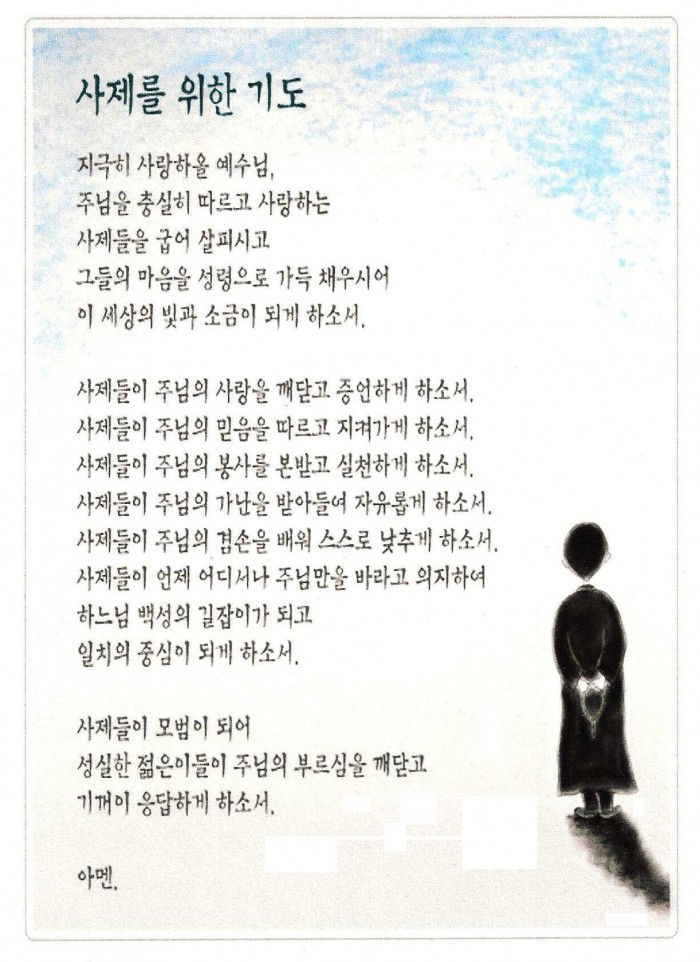 사제를 위한 기도
지극히 사랑하올 예수님,
주님을 충실히 따르고 사랑하는
사제들을 굽어 살피시고
그들의 마음을 성령으로 가득 채우시어
이 세상의 빛과 소금이 되게 하소서.
사제들이 주님의 사랑을 깨닫고 증언하게 하소서.
사제들이 주님의 믿음을 따르고 지켜가게 하소서.
사제들이 주님의 봉사를 본받고 실천하게 하소서.
사제들이 주님의 가난을 받아들여 자유롭게 하소서.
사제들이 주님의 겸손을 배워 스스로 낮추게 하소서.
사제들이 언제 어디서나 주님만을 바라고 의지하여
하느님 백성의 길잡이가 되고
일치의 중심이 되게 하소서.
사제들이 모범이 되어
성실한 젊은이들이 주님의 부르심을 깨닫고
기꺼이 응답하게 하소서.
아멘.